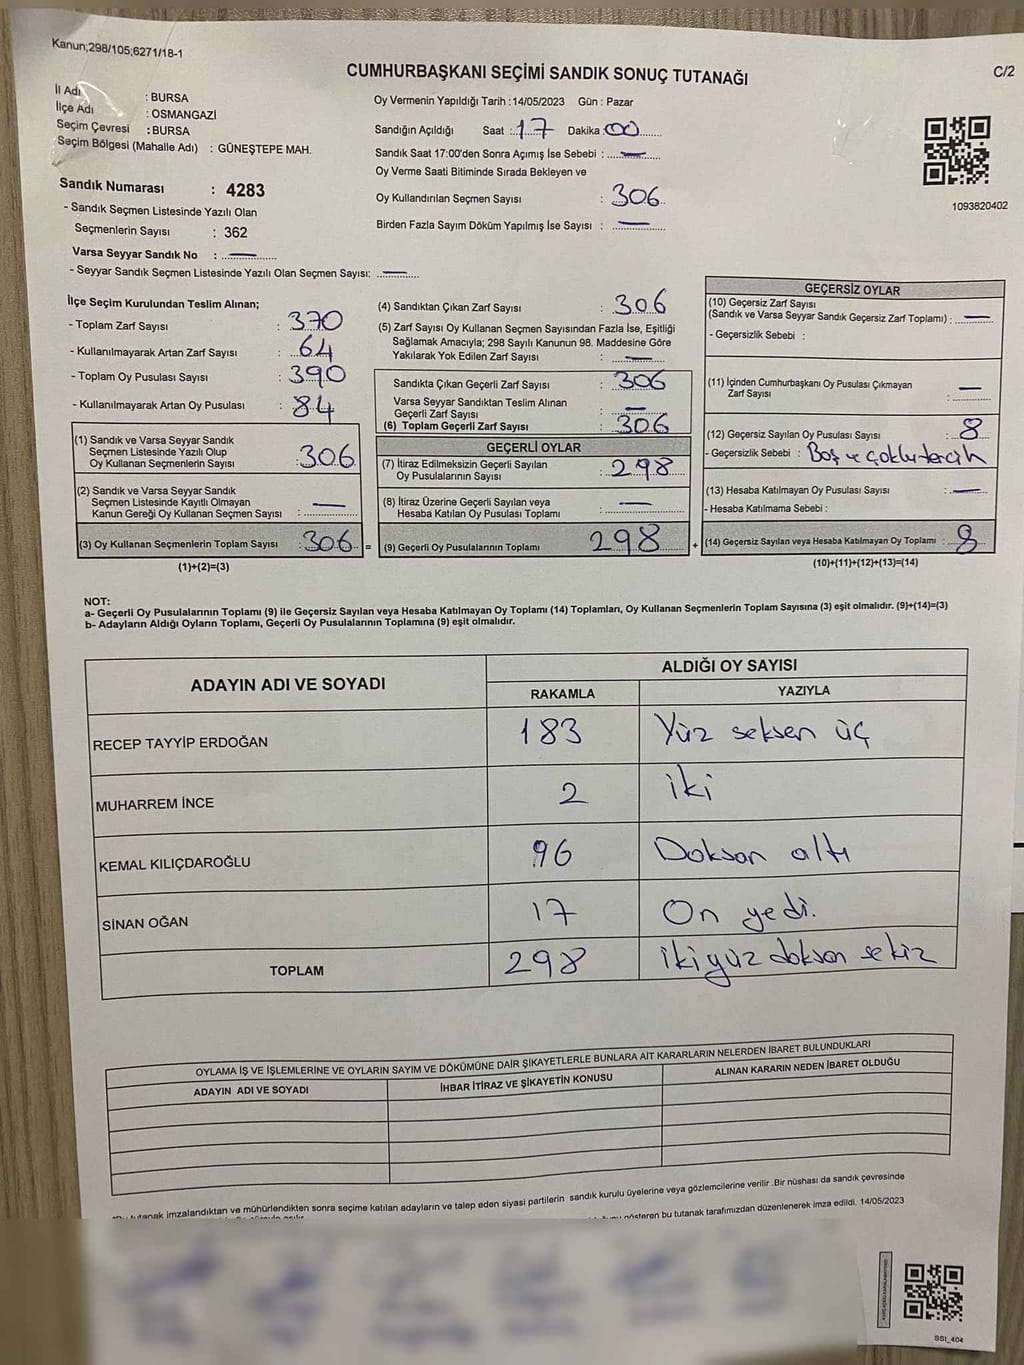 Kanun;298/105;6271/18-1
CUMHURBAŞKANI SEÇİMİ SANDIK SONUÇ TUTANAĞI
C/2
İl Adı : BURSA
İlçe Adı : OSMANGAZİ
Seçim Çevresi : BURSA
Seçim Bölgesi (Mahalle Adı) : GÜNEŞTEPE MAH.
Sandık Numarası : 4283
- Sandık Seçmen Listesinde Yazılı Olan
Seçmenlerin Sayısı : 362
Varsa Seyyar Sandık No : —
- Seyyar Sandık Seçmen Listesinde Yazılı Olan Seçmen Sayısı: —
Oy Vermenin Yapıldığı Tarih :14/05/2023 Gün : Pazar
Sandığın Açıldığı Saat : 17 Dakika : 00
Sandık Saat 17:00'den Sonra Açımış İse Sebebi : —
Oy Verme Saati Bitiminde Sırada Bekleyen ve
Oy Kullandırılan Seçmen Sayısı : 306
Birden Fazla Sayım Döküm Yapılmış İse Sayısı : —
1093820402
İlçe Seçim Kurulundan Teslim Alınan;
- Toplam Zarf Sayısı : 370
- Kullanılmayarak Artan Zarf Sayısı : 64
- Toplam Oy Pusulası Sayısı : 390
- Kullanılmayarak Artan Oy Pusulası : 84
(1) Sandık ve Varsa Seyyar Sandık
Seçmen Listesinde Yazılı Olup
Oy Kullanan Seçmenlerin Sayısı : 306
(2) Sandık ve Varsa Seyyar Sandık
Seçmen Listesinde Kayıtlı Olmayan
Kanun Gereği Oy Kullanan Seçmen Sayısı : —
(3) Oy Kullanan Seçmenlerin Toplam Sayısı : 306 =
(1)+(2)=(3)
(4) Sandıktan Çıkan Zarf Sayısı : 306
(5) Zarf Sayısı Oy Kullanan Seçmen Sayısından Fazla İse, Eşitliği
Sağlamak Amacıyla; 298 Sayılı Kanunun 98. Maddesine Göre
Yakılarak Yok Edilen Zarf Sayısı : —
Sandıkta Çıkan Geçerli Zarf Sayısı : 306
Varsa Seyyar Sandıktan Teslim Alınan
Geçerli Zarf Sayısı : —
(6) Toplam Geçerli Zarf Sayısı : 306
GEÇERLİ OYLAR
(7) İtiraz Edilmeksizin Geçerli Sayılan
Oy Pusulalarının Sayısı : 298
(8) İtiraz Üzerine Geçerli Sayılan veya
Hesaba Katılan Oy Pusulası Toplamı : —
(9) Geçerli Oy Pusulalarının Toplamı 298 +
GEÇERSİZ OYLAR
(10) Geçersiz Zarf Sayısı
(Sandık ve Varsa Seyyar Sandık Geçersiz Zarf Toplamı) : —
- Geçersizlik Sebebi :
(11) İçinden Cumhurbaşkanı Oy Pusulası Çıkmayan
Zarf Sayısı : —
(12) Geçersiz Sayılan Oy Pusulası Sayısı : 8
- Geçersizlik Sebebi : Boş ve çoklu tercih
(13) Hesaba Katılmayan Oy Pusulası Sayısı : —
- Hesaba Katılmama Sebebi :
(14) Geçersiz Sayılan veya Hesaba Katılmayan Oy Toplamı : 8
(10)+(11)+(12)+(13)=(14)
NOT:
a- Geçerli Oy Pusulalarının Toplamı (9) ile Geçersiz Sayılan veya Hesaba Katılmayan Oy Toplamı (14) Toplamları, Oy Kullanan Seçmenlerin Toplam Sayısına (3) eşit olmalıdır. (9)+(14)=(3)
b- Adayların Aldığı Oyların Toplamı, Geçerli Oy Pusulalarının Toplamına (9) eşit olmalıdır.
ADAYIN ADI VE SOYADI
ALDIĞI OY SAYISI
RAKAMLA YAZIYLA
RECEP TAYYİP ERDOĞAN 183 Yüz seksen üç
MUHARREM İNCE 2 iki
KEMAL KILIÇDAROĞLU 96 Doksan altı
SİNAN OĞAN 17 On yedi.
TOPLAM 298 iki yüz doksan sekiz
OYLAMA İŞ VE İŞLEMLERİNE VE OYLARIN SAYIM VE DÖKÜMÜNE DAİR ŞİKAYETLERLE BUNLARA AİT KARARLARIN NELERDEN İBARET BULUNDUKLARI
ADAYIN ADI VE SOYADI İHBAR İTİRAZ VE ŞİKAYETİN KONUSU ALINAN KARARIN NEDEN İBARET OLDUĞU
tutanak imzalandıktan ve mühürlendikten sonra seçime katılan adayların ve talep eden siyasi partilerin sandık kurulu üyelerine veya gözlemcilerine verilir .Bir nüshası da sandık çevresinde
gösteren bu tutanak tarafımızdan düzenlenerek imza edildi. 14/05/2023
SSI_404